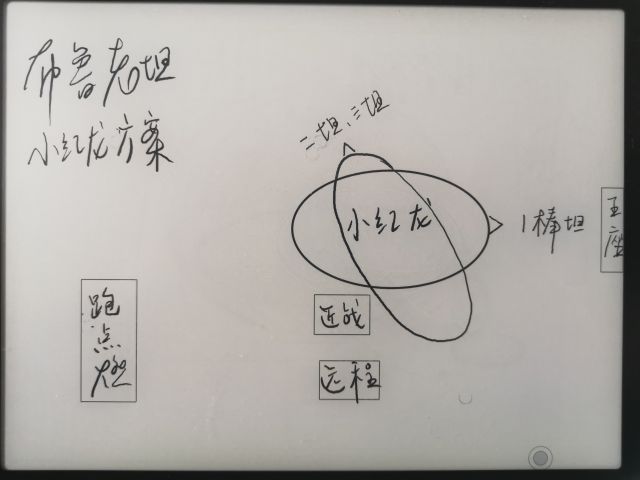 布鲁老坦
小红龙方案
二坦、三坦
小红龙
1棒坦
王座
跑点燃
近战
远程